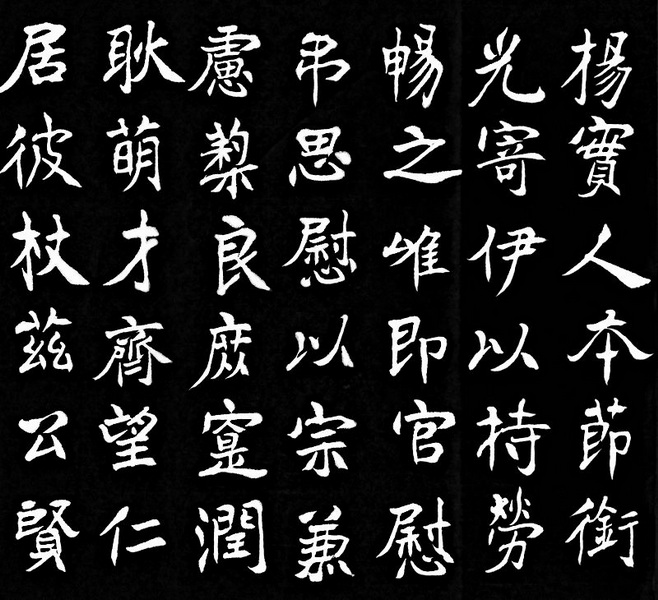 揚實人本節銜
光寄伊以持勞
暢之唯即官慰
弔思慰以宗兼
慮良庶寔潤
耿萌才齊望仁
居彼杖茲公賢